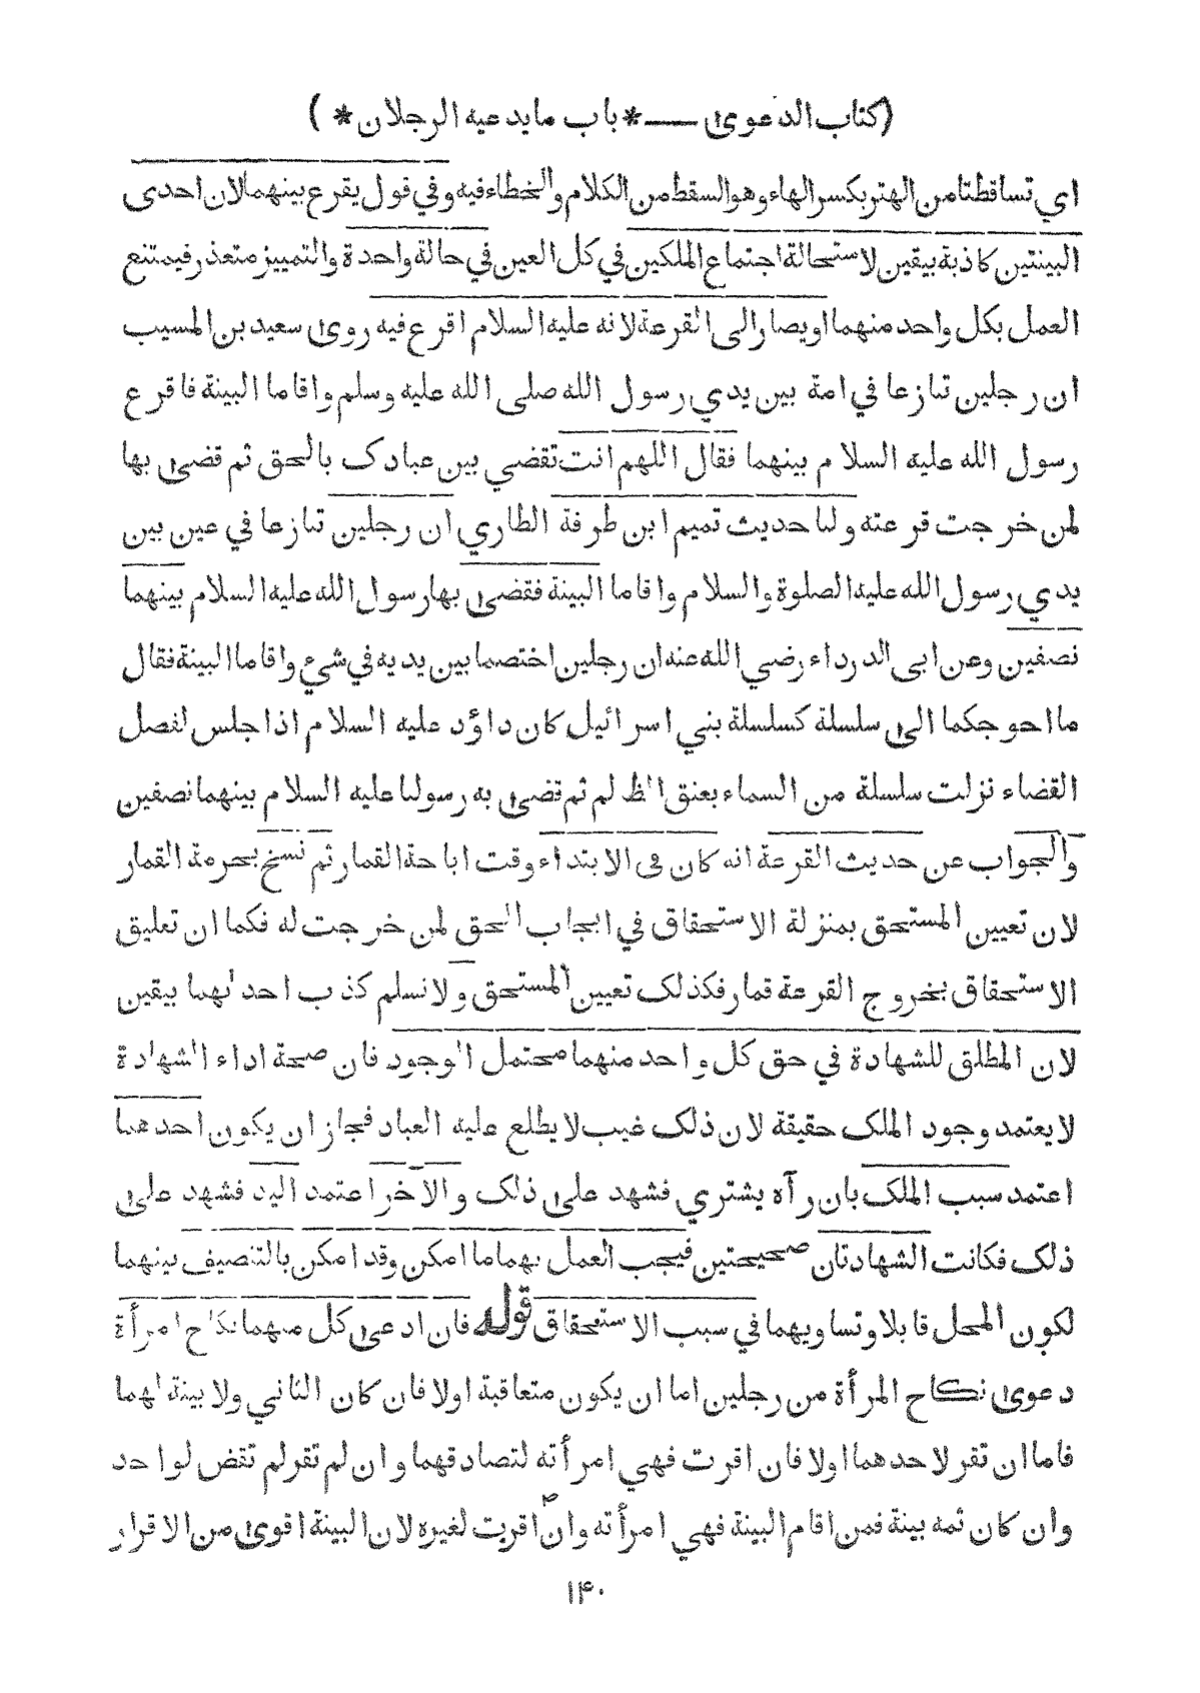 (كتاب الدعوى — *باب ما يدعيه الرجلان* )
اي تساقطتا من الهتر بكسر الهاء وهو السقط من الكلام والخطاء فيه وفي قول يقرع بينهما لان احدى
البينتين كاذبة بيقين لاستحالة اجتماع الملكين في كل العين في حالة واحدة والتمييز متعذر فيمتنع
العمل بكل واحد منهما او يصار الى القرعة لانه عليه السلام اقرع فيه روى سعيد بن المسيب
ان رجلين تنازعا في امة بين يدي رسول الله صلى الله عليه وسلم واقاما البينة فاقرع
رسول الله عليه السلام بينهما فقال اللهم انت تقضي بين عبادك بالحق ثم قضى بها
لمن خرجت قرعته ولنا حديث تميم ابن طرفة الطاري ان رجلين تنازعا في عين بين
يدي رسول الله عليه الصلوة والسلام واقاما البينة فقضى بها رسول الله عليه السلام بينهما
نصفين وعن ابى الدرداء رضي الله عنه ان رجلين اختصما بين يديه في شيء واقاما البينة فقال
ما احوجكما الى سلسلة كسلسلة بني اسرائيل كان داؤد عليه السلام اذا جلس لفصل
القضاء نزلت سلسلة من السماء بعنق الظالم ثم قضى به رسولنا عليه السلام بينهما نصفين
والجواب عن حديث القرعة انه كان فى الابتداء وقت اباحة القمار ثم نسخ بحرمة القمار
لان تعيين المستحق بمنزلة الاستحقاق في ايجاب الحق لمن خرجت له فكما ان تعليق
الاستحقاق بخروج القرعة قمار فكذلك تعيين المستحق ولا نسلم كذب احدٰيهما بيقين
لان المطلق للشهادة في حق كل واحد منهما محتمل الوجود فان صحة اداء الشهادة
لا يعتمد وجود الملك حقيقة لان ذلك غيب لا يطلع عليه العباد فجاز ان يكون احدهما
اعتمد سبب الملك بان رآه يشتري فشهد على ذلك والآخر اعتمد اليد فشهد على
ذلك فكانت الشهادتان صحيحتين فيجب العمل بهما ما امكن وقد امكن بالتنصيف بينهما
لكون المحل قابلا وتساويهما في سبب الاستحقاق قوله فان ادعى كل منهما نكاح امرأة
دعوى نكاح المرأة من رجلين اما ان يكون متعاقبة اولا فان كان الثاني ولا بينة لهما
فاما ان تقر لاحدهما اولا فان اقرت فهي امرأته لتصادقهما وان لم تقر لم تقض لواحد
وان كان ثمه بينة فمن اقام البينة فهي امرأته وان اقربت لغيره لان البينة اقوى من الاقرار
۱۴۰